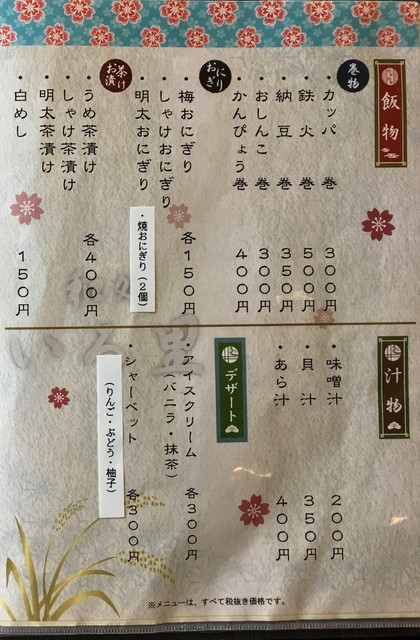 飯物
巻物
・カッパ巻 300円
・鉄火巻 500円
・納豆巻 350円
・おしんこ巻 300円
・かんぴょう巻 400円
おにぎり
・梅おにぎり
・しゃけおにぎり
・明太おにぎり
各150円
・焼おにぎり(2個)
お茶漬け
・うめ茶漬け
・しゃけ茶漬け
・明太茶漬け
各400円
・白めし 150円
汁物
・味噌汁 200円
・貝汁 350円
・あら汁 400円
デザート
・アイスクリーム
(バニラ・抹茶)
各300円
・シャーベット
(りんご・ぶどう・柚子)
各300円
※メニューは、すべて税抜き価格です。